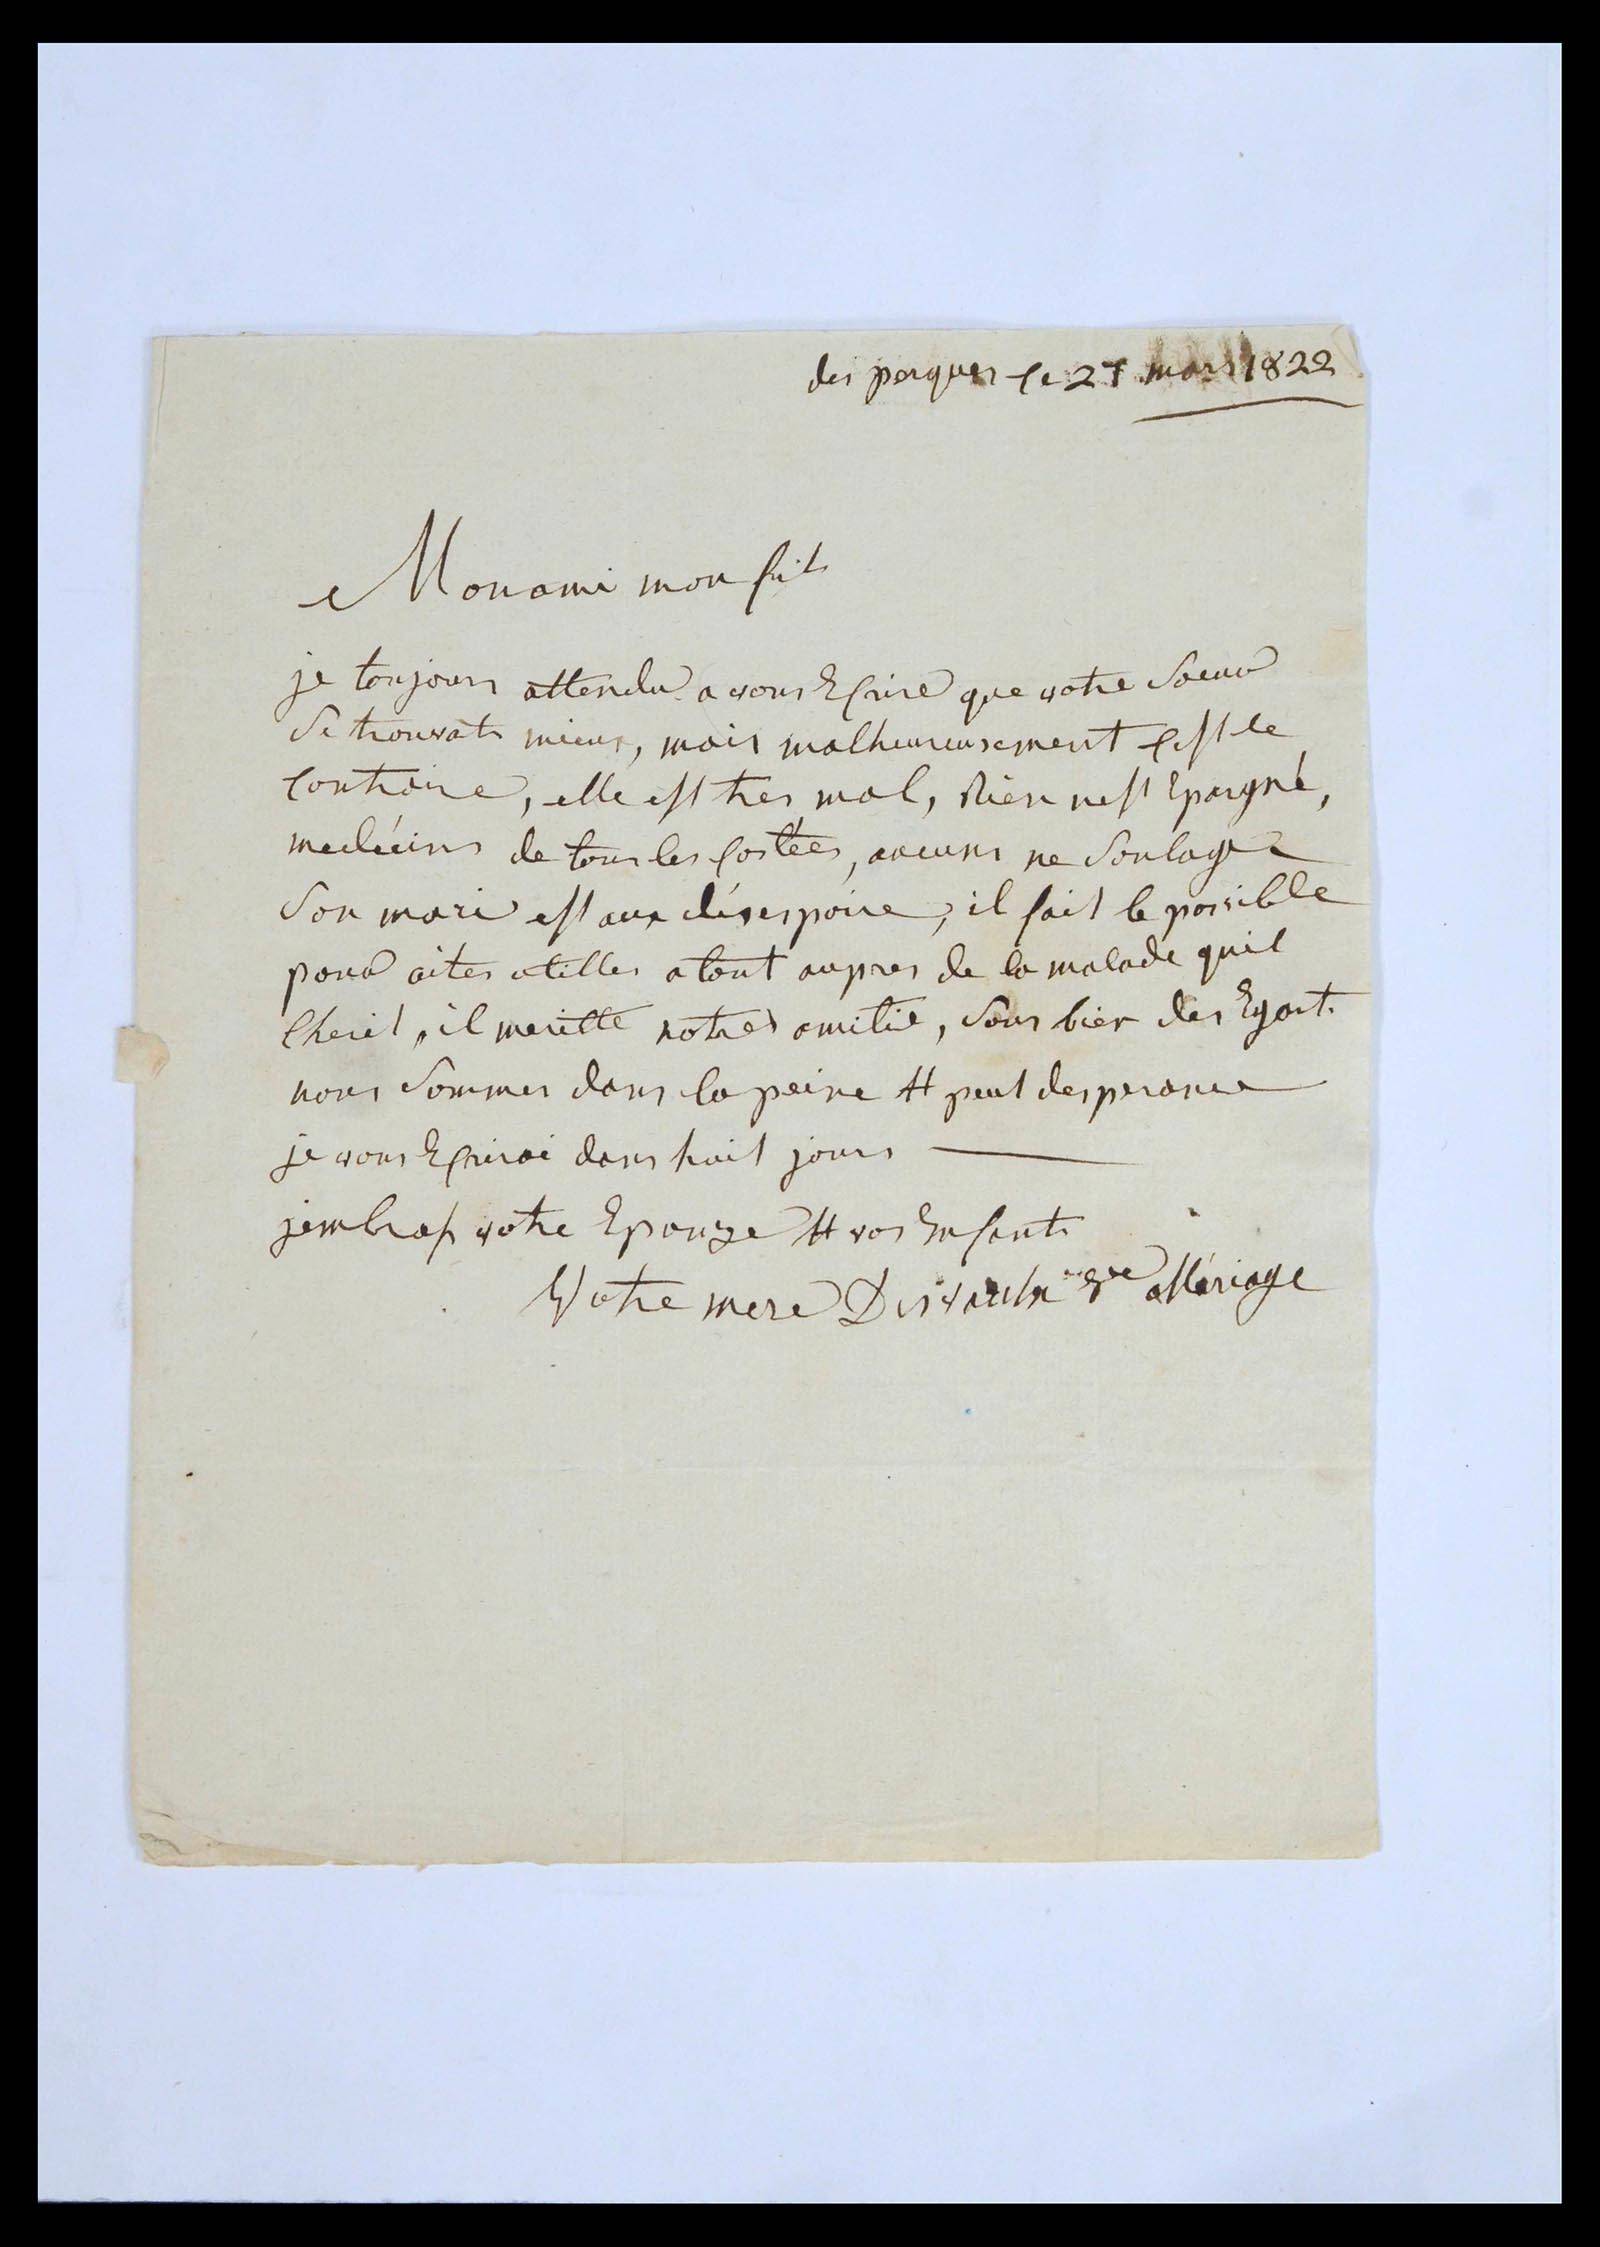 des perques le 27 mars 1822
Mon ami mon fils
je toujours attendu a vous Ecrire que votre Soeur
Se trouvats mieux, mais malheureusement cest le
Contraire, elle est tres mal, Rien nest Epargné,
medécins de tous les costées, aucuns ne Soulage
Son mari est aux désespoire, il fait le possible
pour aites utilles a tout aupres de la malade quil
Cherit, il meritte notres amitie, Sous bien des Egart
nous Sommes dans la peine et peut desperance
je vous Ecrirai dans huit jours
jembrass votre Epouze et vos Enfants
Votre mere ve Mériage